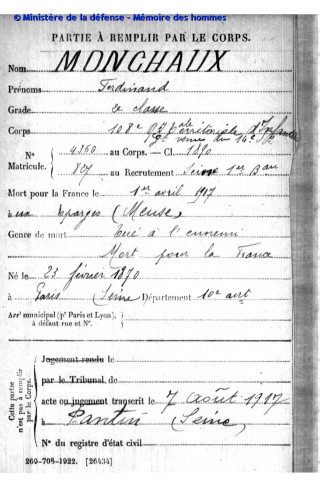 © Ministère de la défense - Mémoire des hommes
PARTIE À REMPLIR PAR LE CORPS.
Nom MONCHAUX
Prénoms Ferdinand
Grade 2e classe
Corps 108e Territoriale d'Infanterie
venu du 14e
N° 4360 au Corps. — Cl. 1890
Matricule. 807 au Recrutement Seine 1er Bau
Mort pour la France le 1er avril 1917
à aux Eparges (Meuse)
Genre de mort Tué à l'ennemi
Mort pour la France
Né le 23 février 1870
à Paris (Seine) Département 10e arrt
Arrt municipal (pr Paris et Lyon),
à défaut rue et N°.
Cette partie
n'est pas à remplir
par le Corps.
Jugement rendu le
par le Tribunal de
acte ou jugement transcrit le 7 août 1917
à Pantin (Seine)
N° du registre d'état civil
269-708-1922. [26434]